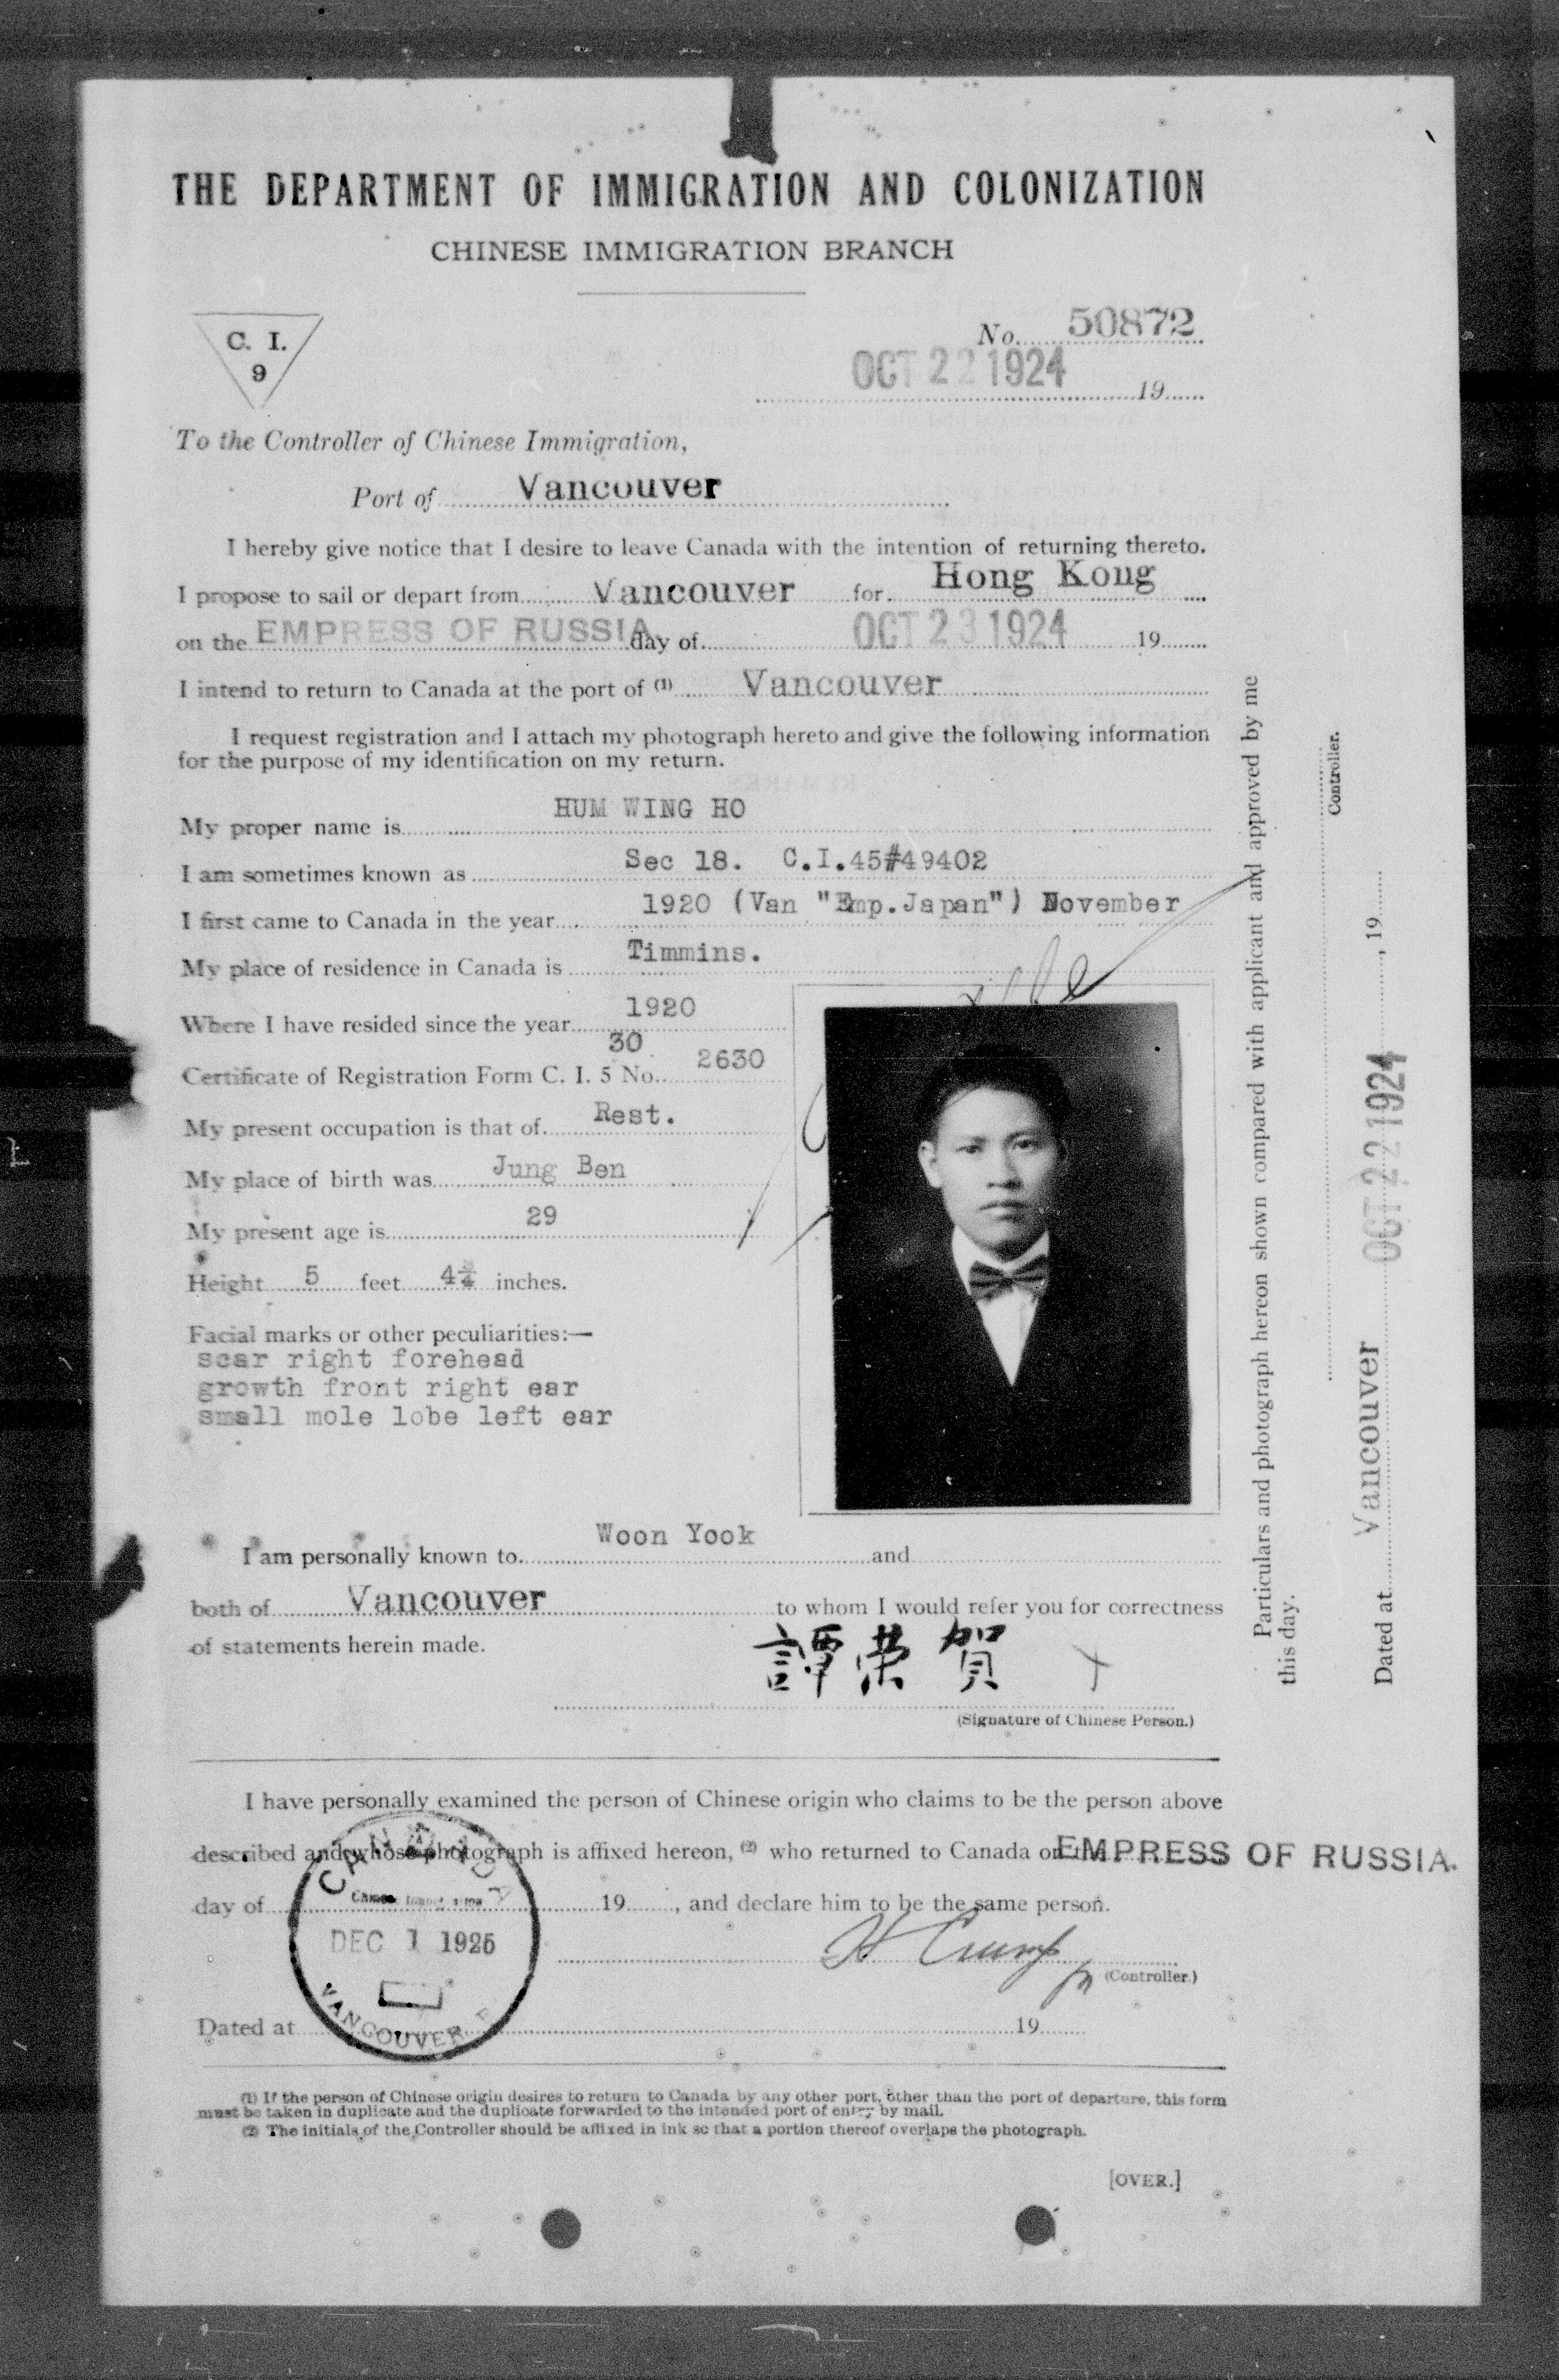 THE DEPARTMENT OF IMMIGRATION AND COLONIZATION
CHINESE IMMIGRATION BRANCH
C. I.
9
No. 50872
OCT 22 1924 19
To the Controller of Chinese Immigration,
Port of Vancouver
I hereby give notice that I desire to leave Canada with the intention of returning thereto.
I propose to sail or depart from Vancouver for Hong Kong
on the EMPRESS OF RUSSIA day of OCT 23 1924 19
I intend to return to Canada at the port of (1) Vancouver
I request registration and I attach my photograph hereto and give the following information
for the purpose of my identification on my return.
My proper name is HUM WING HO
I am sometimes known as Sec 18. C.I.45#49402
I first came to Canada in the year 1920 (Van "Emp.Japan") November
My place of residence in Canada is Timmins.
Where I have resided since the year 1920
30
Certificate of Registration Form C. I. 5 No. 2630
My present occupation is that of Rest.
My place of birth was Jung Ben
My present age is 29
Height 5 feet 4¾ inches.
Facial marks or other peculiarities:—
scar right forehead
growth front right ear
small mole lobe left ear
I am personally known to Woon Yook and
both of Vancouver to whom I would refer you for correctness
of statements herein made.
譚荣賀
(Signature of Chinese Person.)
I have personally examined the person of Chinese origin who claims to be the person above
described and whose photograph is affixed hereon, (2) who returned to Canada on EMPRESS OF RUSSIA.
day of 19 , and declare him to be the same person.
H Crump
(Controller.)
Dated at 19
CANADA
DEC 1 1925
VANCOUVER
(1) If the person of Chinese origin desires to return to Canada by any other port, other than the port of departure, this form
must be taken in duplicate and the duplicate forwarded to the intended port of entry by mail.
(2) The initials of the Controller should be affixed in ink so that a portion thereof overlaps the photograph.
[OVER.]
Particulars and photograph hereon shown compared with applicant and approved by me
this day.
Controller.
Dated at Vancouver OCT 22 1924 , 19